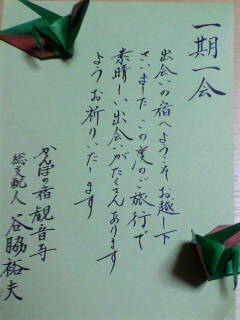 一期一会
出会いの宿へようこそお越し下
さいました この度のご旅行で
素晴しい出会いがたくさんあります
ようお祈りいたします
かんぽの宿 観音寺
総支配人 谷脇裕夫